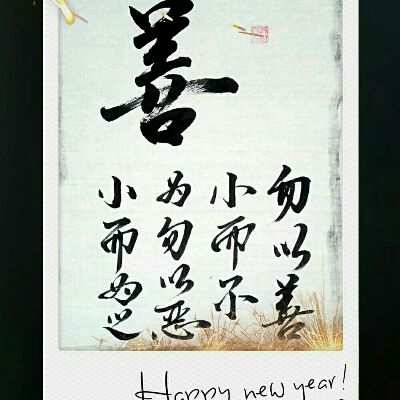 善
勿以善
小而不
为勿以恶
小而为之
Happy new year!